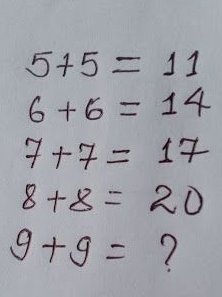 5+5 = 11
6+6 = 14
7+7 = 17
8+8 = 20
9+9 = ?